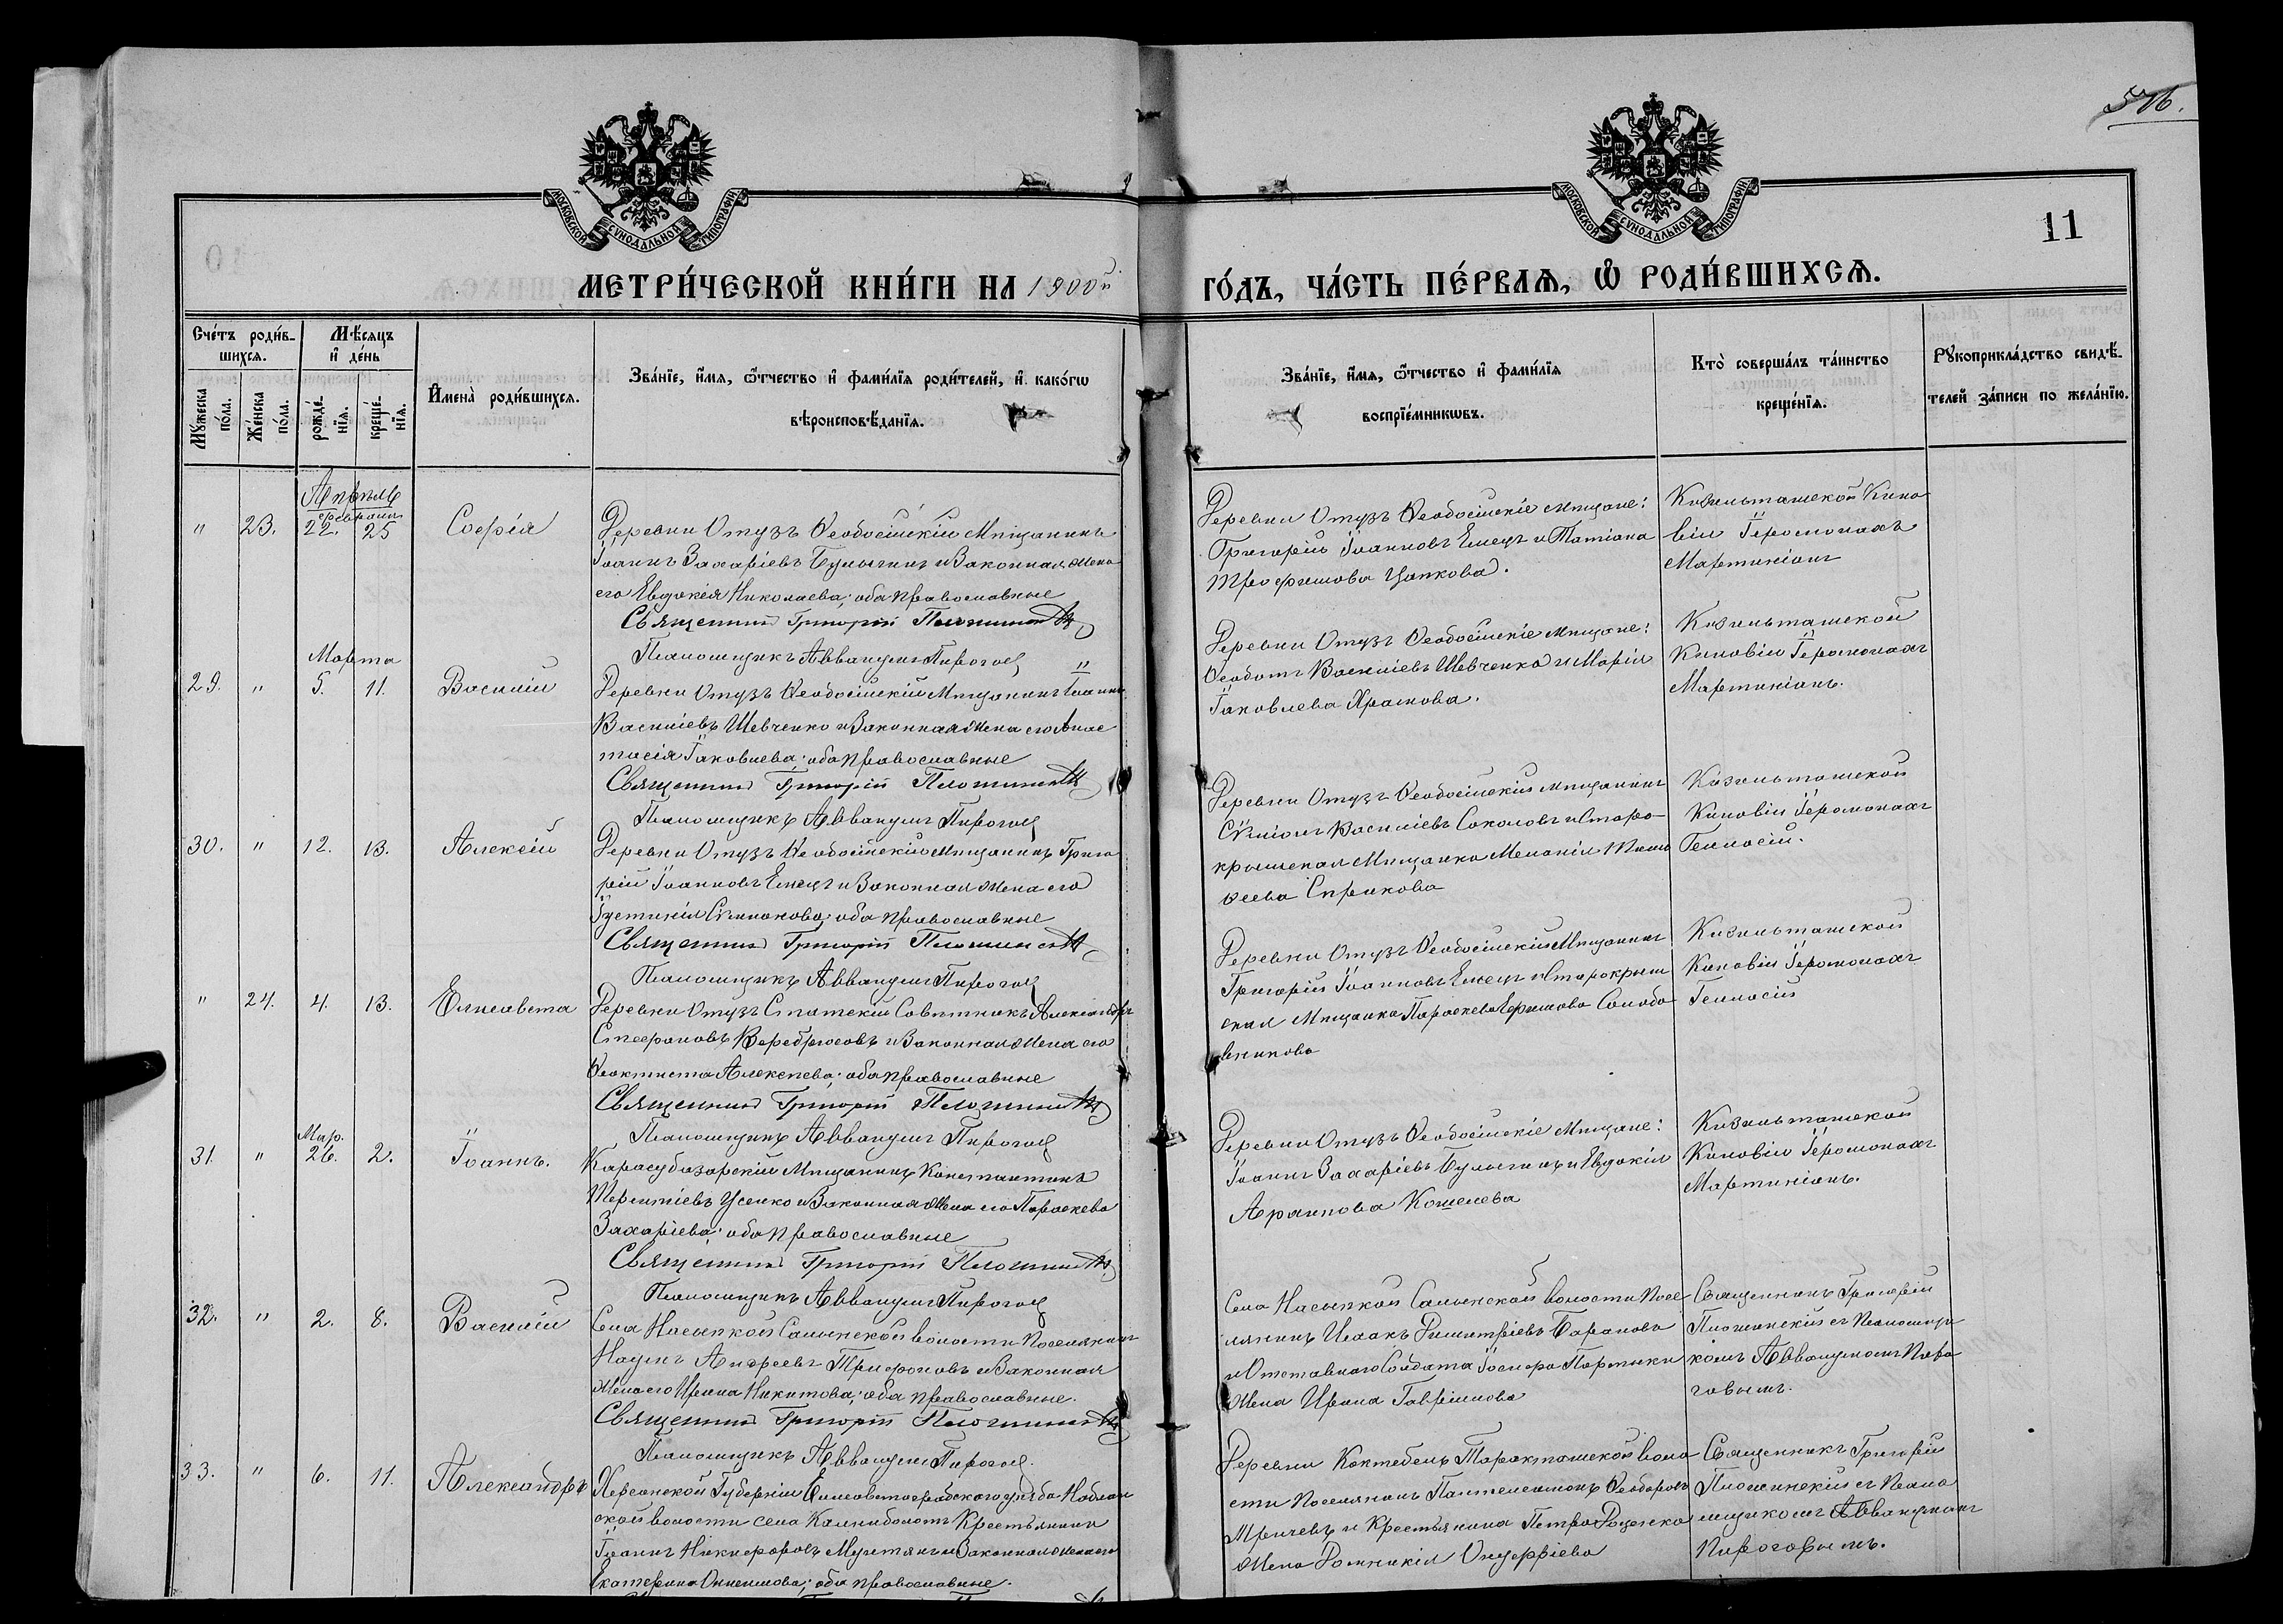 546.
МОСКОВСКОЙ СѴНОДАЛЬНОЙ ТИПОГРАФІИ
МОСКОВСКОЙ СѴНОДАЛЬНОЙ ТИПОГРАФІИ
11
МЕТРИ́ЧЕСКОЙ КНИ́ГИ НА 1900й
ГО́ДЪ, ЧА́СТЬ ПЕ́РВАѦ, Ѡ҆ РОДИ́ВШИХСѦ.
Сче́тъ роди́в-
шихсѧ.
Мѣ́сѧцъ
и҆ де́нь
Мꙋ́жеска
по́ла.
Же́нска
по́ла.
рожде́-
нїѧ.
креще́-
нїѧ.
И҆мена̀ роди́вшихсѧ.
Зва́нїе, и҆́мѧ, ѻ҆́тчество и҆ фами́лїѧ роди́телей, и҆ како́гѡ
вѣроисповѣ́данїѧ.
Зва́нїе, и҆́мѧ, ѻ҆́тчество и҆ фами́лїѧ
воспрїе́мникѡвъ.
Кто̀ соверша́лъ та́инство
креще́нїѧ.
Рꙋкоприкла́дство свидѣ́-
телей за́писи по жела́нїю.
Апрѣль
Февраля
" 23. 22. 25 Софія
Деревни Отузъ Ѳеодосійскій Мѣщанинъ
Іоаннъ Захаріевъ Булыгинъ и Законная жена
его Евдокія Николаева; оба православные
Священник Григорій
Псаломщикъ Аввакумъ Пирогов
Деревни Отузъ Ѳеодосійскіе мѣщане:
Григорій Іоанновъ Емецъ и Татіана
Трофимова Цапкова.
Кизильташской Кино
віи Іеромонахъ
Мартиніанъ
Марта
29. " 5. 11. Василій
Деревни Отузъ Ѳеодосійскій Мѣщанинъ Іоаннъ
Василіевъ Шевченко и Законная Жена его Анас
тасія Іаковлева; оба православные
Священник Григорій
Псаломщикъ Аввакумъ Пирогов
Деревни Отузъ Ѳеодосійскіе мѣщане:
Ѳеодотъ Василіевъ Шевченко и Марія
Іаковлева Храмова.
Кизильташской
Киновіи Іеромонахъ
Мартиніанъ.
30. " 12. 13. Алексій
Деревни Отузъ Ѳеодосійскій Мѣщанинъ Григо
рій Іоанновъ Емецъ и Законная Жена его
Іустинія Симонова оба православные
Священник Григорій
Псаломщикъ Аввакумъ Пирогов
Деревни Отузъ Ѳеодосійскій мѣщанинъ
Сѵміонъ Василіевъ Соколовъ и Старо-
крымская Мѣщанка Меланія Тимо
ѳеева Сприкова
Кизильташской
Киновіи Іеромонахъ
Геннасій.
" 24. 4. 13. Елисавета
Деревни Отузъ Статскій Совѣтникъ Александръ
Стефановъ Вербрюсовъ и Законная Жена его
Ѳеоктиста Алексѣева; оба православные
Священник Григорій
Псаломщикъ Аввакумъ Пирогов
Деревни Отузъ Ѳеодосійскій Мѣщанинъ
Григорій Іоанновъ Емецъ и Старокрым
ская Мѣщанка Параскева Ефимова Солодо
вникова
Кизильташской
Киновіи Іеромонахъ
Геннасій
Мар.
31. " 26. 2. Іоаннъ.
Карасубазарскій Мѣщанинъ Константинъ
Терентіевъ Усенко и Законная Жена его Параскева
Захаріева; оба православные
Священник Григорій
Псаломщикъ Аввакумъ Пирогов
Деревни Отузъ Ѳеодосійскіе Мѣщане:
Іоаннъ Захаріевъ Булыгинъ и Евдокія
Архипова Кошелева
Кизильташской
Киновіи Іеромонахъ
Мартиніанъ.
32. " 2. 8. Василій
Села Насыпкой Салынской волости Поселянинъ
Наумъ Андреевъ Трифоновъ и Законная
Жена его Ирина Никитова; оба православные.
Священник Григорій
Псаломщикъ Аввакумъ Пирогов.
Села Насыпкой Салынской волости Посе
лянинъ Исаакъ Димитріевъ Барановъ
и Отставнаго Солдата Іосифа Портыки
Жена Ирина Гавріилова
Священникъ Григорій
съ Псаломщи
комъ Аввакумомъ Пиро
говымъ.
33. " 6. 11. Александръ
Херсонской Губерніи Елисаветоградскаго уѣзда
ской волости села Крестьянинъ
Іоаннъ Никифоровъ и Законная жена его
Екатерина Онисимова; оба православные.
Деревни Коктебель Таракташской воло
сти Поселянинъ Пантелеимонъ Ѳеодоровъ
и Крестьянина Петра
Жена Домникія Онуфріева
Священникъ Григорій
съ Псало
мщикомъ Аввакумомъ
Пироговымъ.